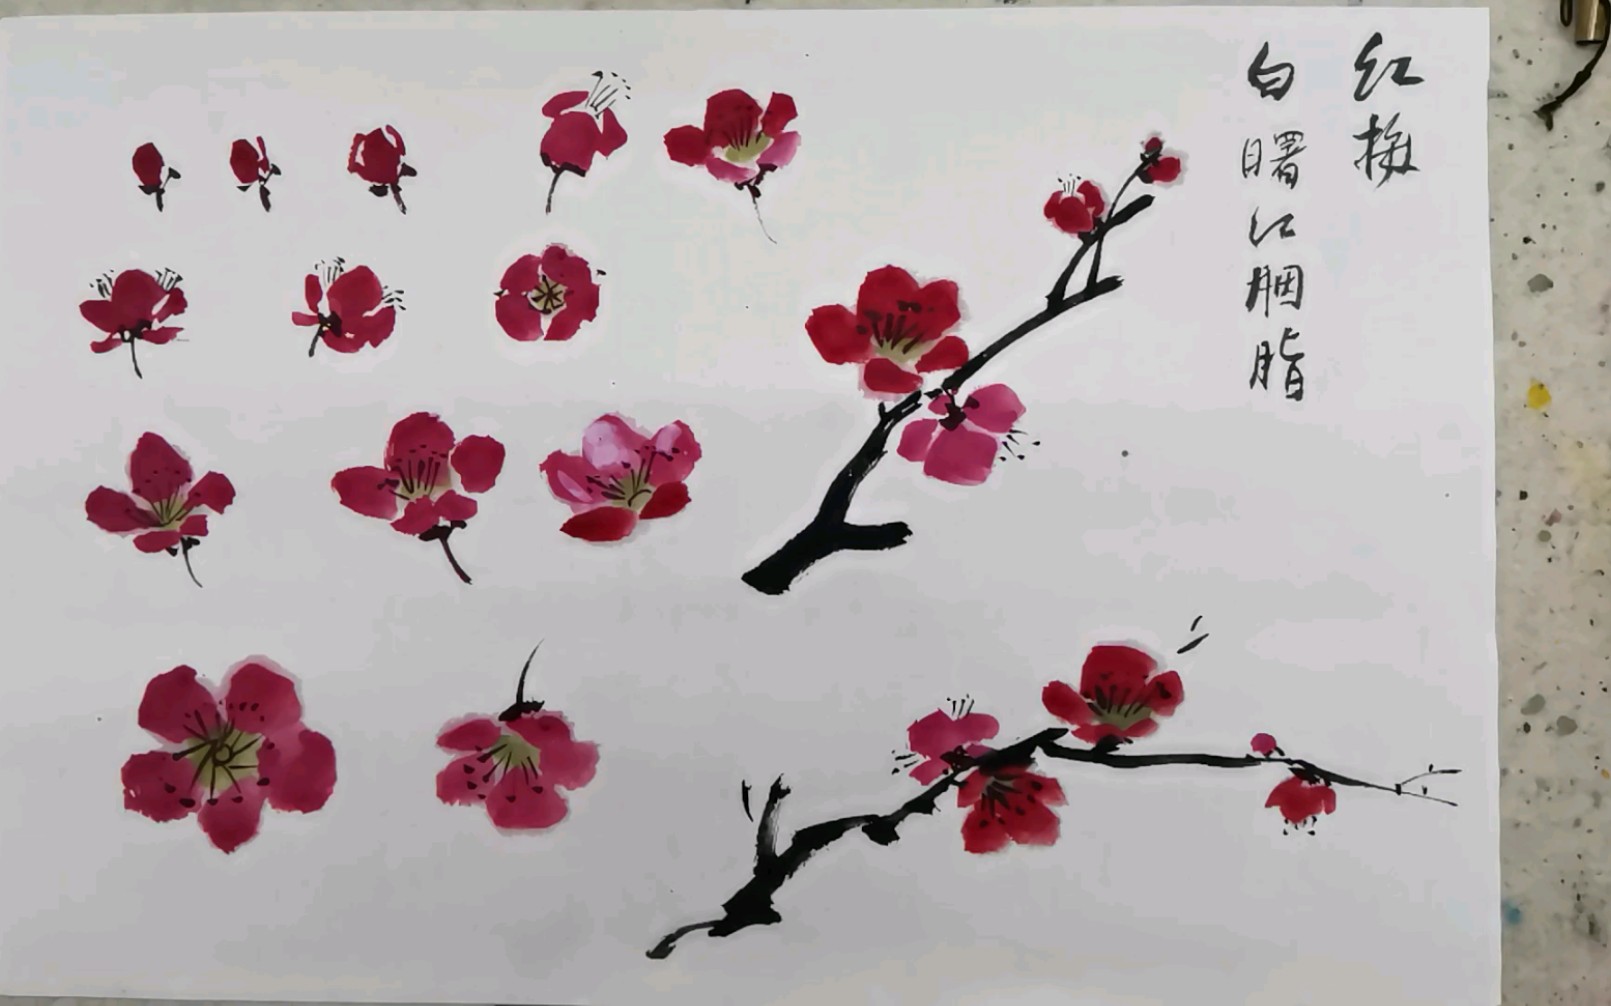 红梅
白曙红胭脂